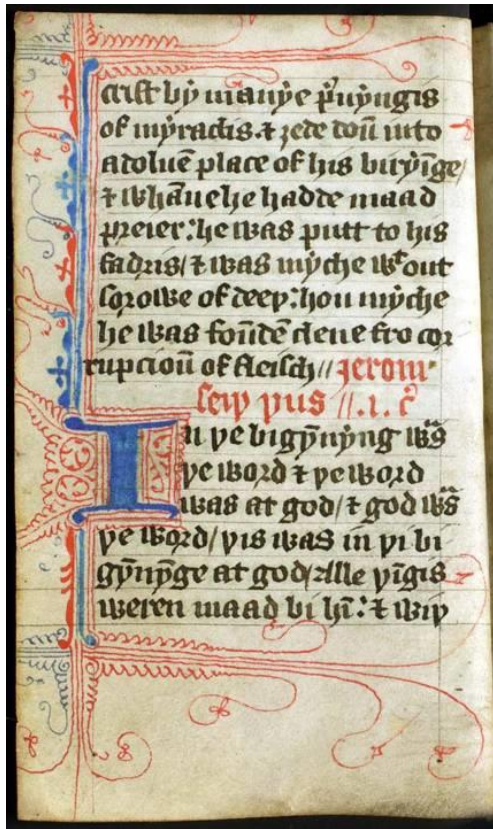 crist bẏ manẏe p̃uẏngis
of mẏraclis ⁊ ȝede doũ into
a doluẽ place of his burẏĩge/
⁊ whãne he hadde maad
preier: he was putt to his
fadris/ ⁊ was mẏche wͭ out
sorowe of deeþ: hou mẏche
he was foũdẽ clene fro cor
rupcioũ of fleisch// Jerom
seiþ þus //.1. c̃
In þe bigẏñẏng wãs
þe word ⁊ þe word
was at god/ ⁊ god wãs
þe word/ þis was in þi bi
gẏñẏnge at god/ Alle þĩgis
weren maad bi hĩ: ⁊ wiþ